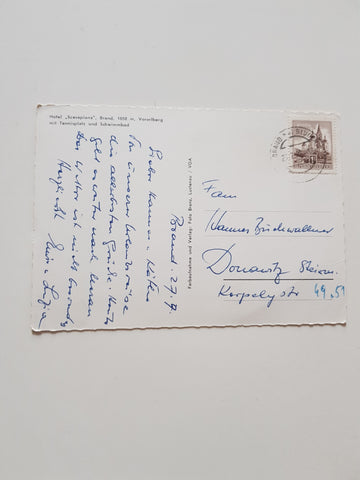 Hotel „Scesaplana“, Brand, 1050 m, Vorarlberg
mit Tennisplatz und Schwimmbad
Brand. 27. 7.
Liebe Hannes u. Käthe
Von unserer Urlaubsreise
die allerbesten Grüße. Heute
geht es weiter nach
Das Wetter ist nicht besonders
Herzlichst
Farbaufnahme und Verlag: Foto Branz, Lustenau / VDA
Fam
Hannes Buchwallner
Donawitz Steierm.
Kerpelystr
49.51